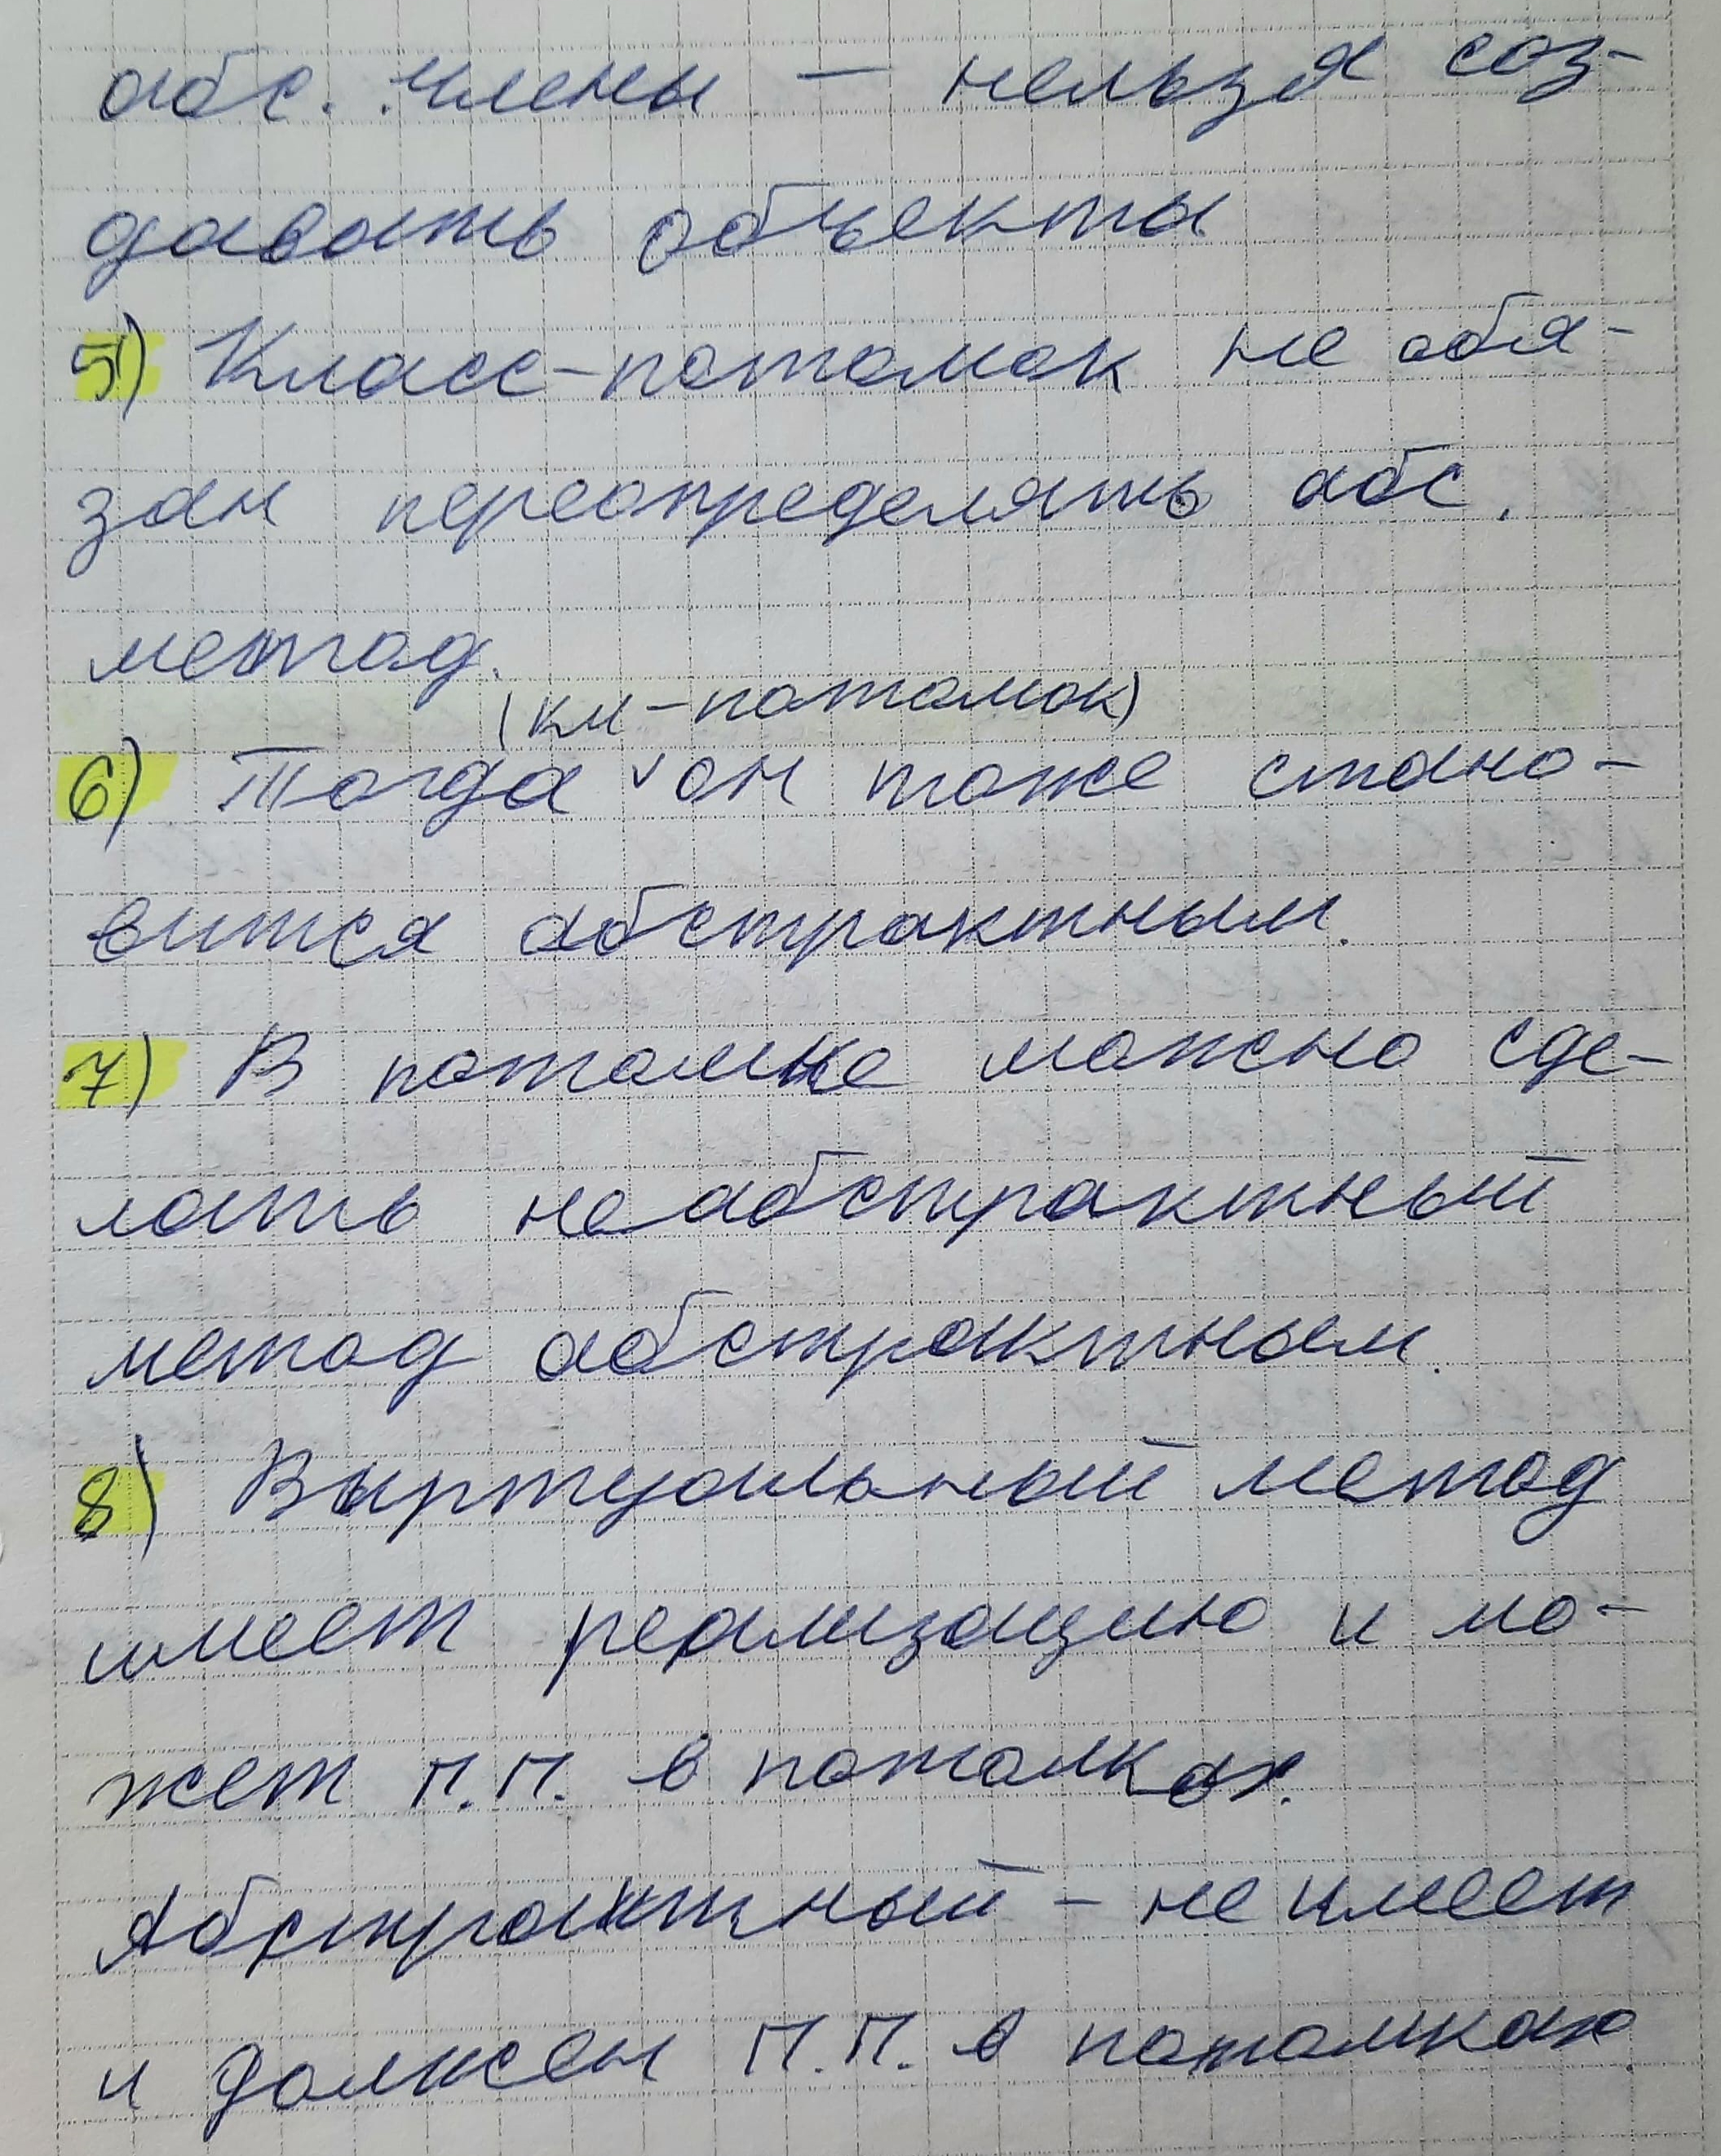 абс. члены — нельзя соз-
давать объекты
5) Класс-потомок не обя-
зан переопределять абс.
метод.
(кл-потомок)
6) Тогда ˅он тоже стано-
вится абстрактным.
7) В потомке можно сде-
лать неабстрактный
метод абстрактным.
8) Виртуальный метод
имеет реализацию и мо-
жет П.П. в потомках.
Абстрактный - не имеет
и должен П.П. в потомках.